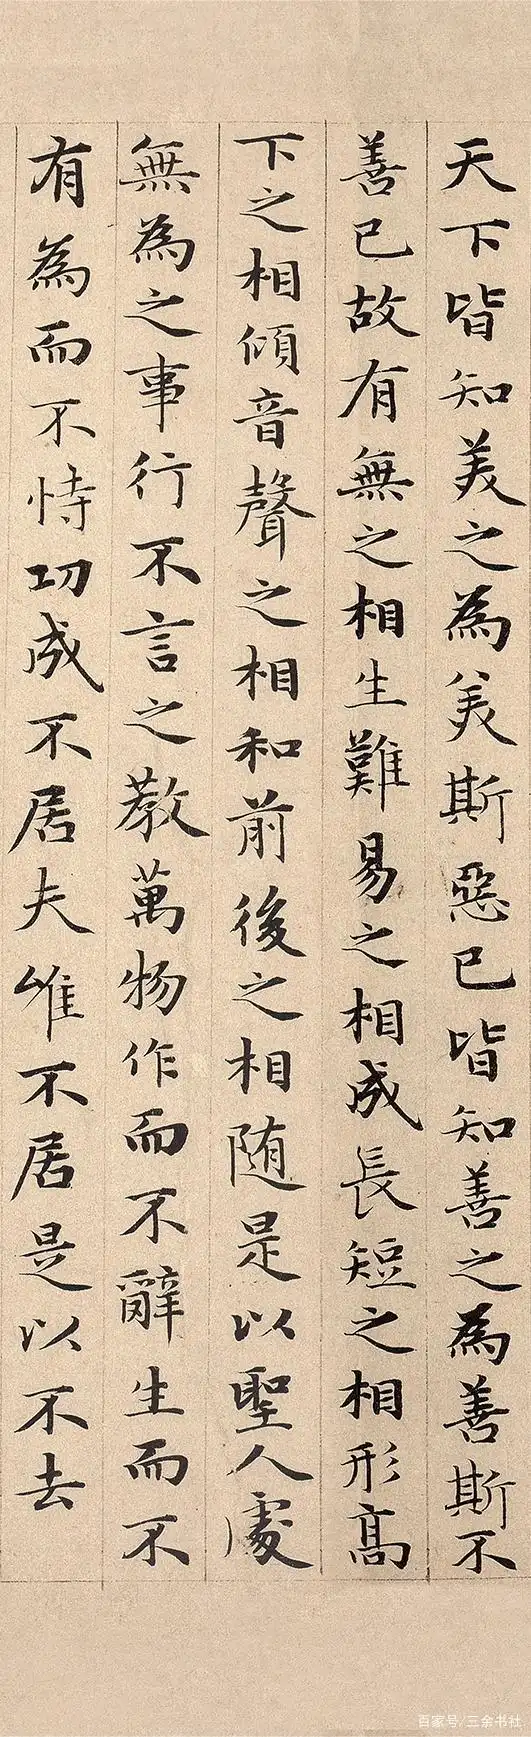 天下皆知美之為美斯惡已皆知善之為善斯不
善已故有無之相生難易之相成長短之相形高
下之相傾音聲之相和前後之相随是以聖人處
無為之事行不言之教萬物作而不辭生而不
有為而不恃功成不居夫惟不居是以不去
百家号/三余书社